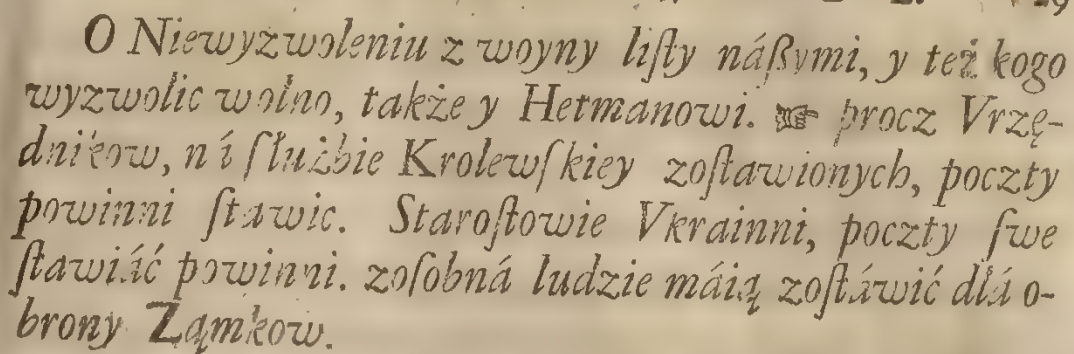 O Niewyzwoleniu z woyny liſty náßymi, y też kogo
wyzwolic wolno, także y Hetmanowi. ☞ procz Vrzę-
dnikow, ná ſłużbie Krolewſkiey zoſtawionych, poczty
powinni ſtawic. Staroſtowie Vkrainni, poczty ſwe
ſtawiáć powinni. zoſobná ludzie máią zoſtáwić dlá o-
brony Ząmkow.